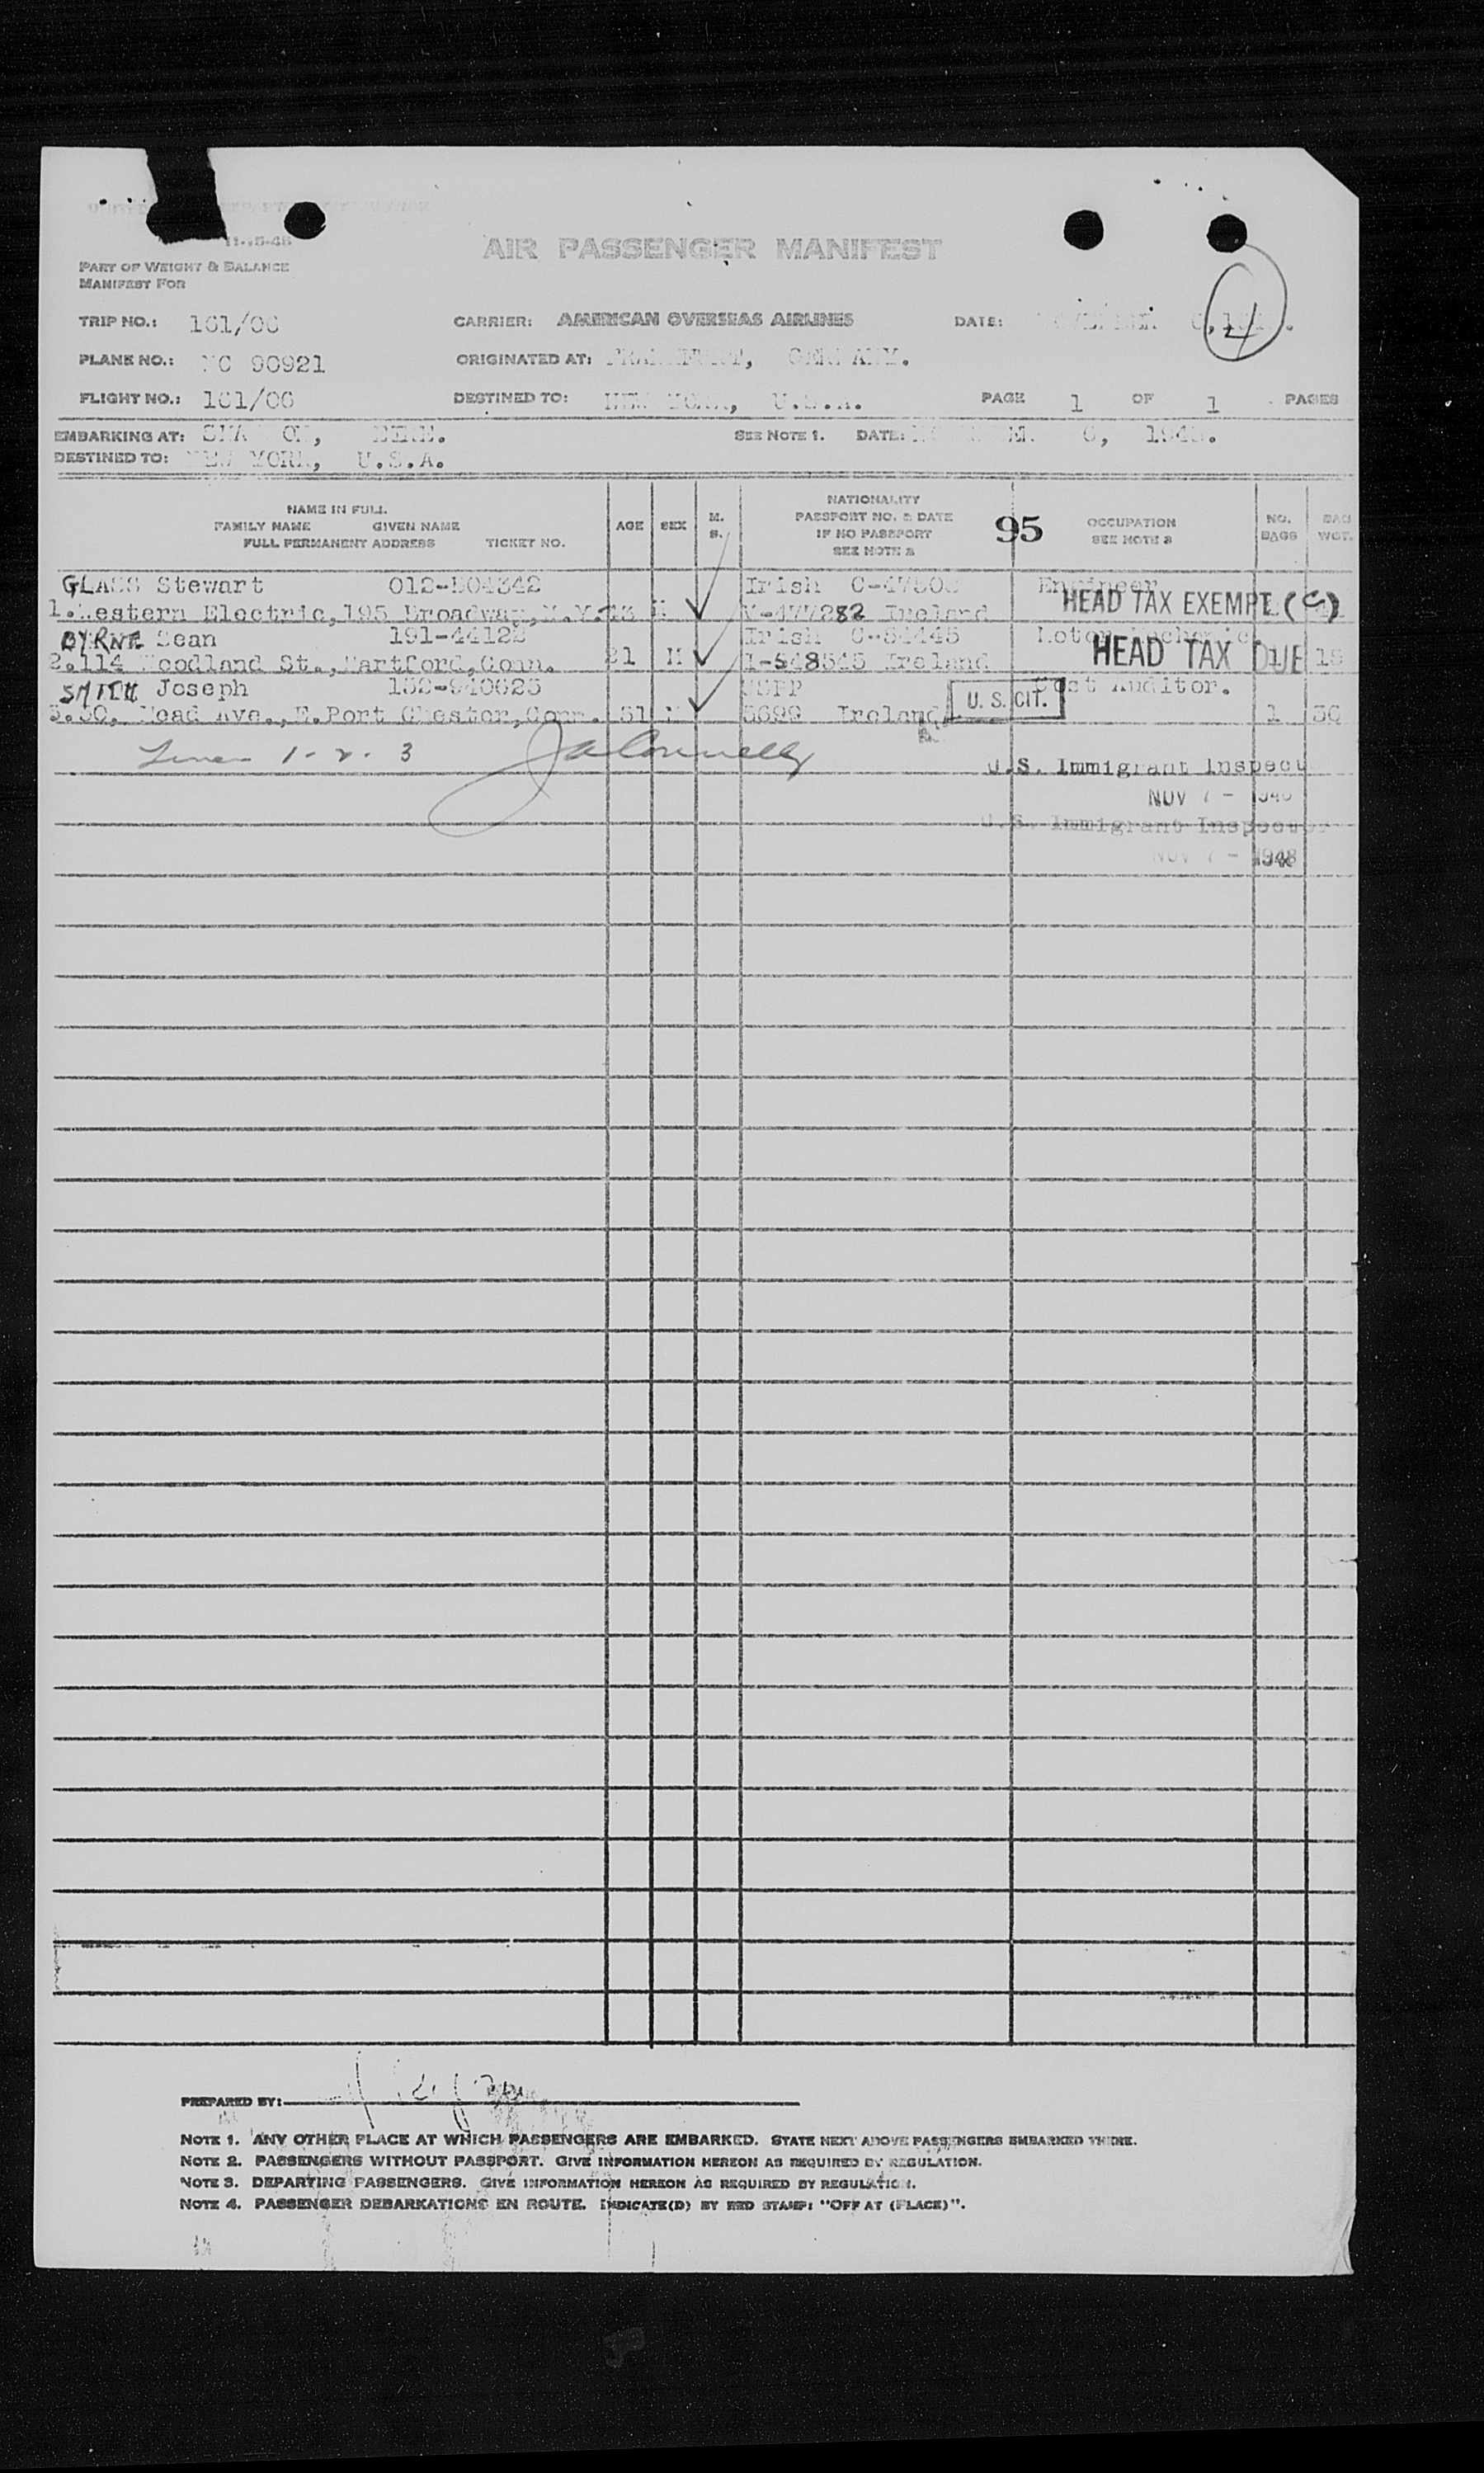 AIR PASSENGER MANIFEST
PART OF WEIGHT & BALANCE
MANIFEST FOR
TRIP NO.: 101/06 CARRIER: AMERICAN OVERSEAS AIRLINES DATE:
4
PLANE NO.: NC 90921 ORIGINATED AT: FRANKFURT, GERMANY.
FLIGHT NO.: 101/06 DESTINED TO: NEW YORK, U.S.A. PAGE 1 OF 1 PAGES
EMBARKING AT: SHANNON, EIRE. SEE NOTE 1. DATE: 6, 1948.
DESTINED TO: NEW YORK, U.S.A.
NAME IN FULL
FAMILY NAME GIVEN NAME
FULL PERMANENT ADDRESS TICKET NO.
AGE SEX M. S.
NATIONALITY
PASSPORT NO. & DATE
IF NO PASSPORT
SEE NOTE 2
95
OCCUPATION
SEE NOTE 3
NO. BAGS
BAG WGT.
GLASS Stewart 012-504342 Irish Engineer
1. Western Electric, 195 Broadway, N.Y. 43 M V-477282 Ireland HEAD TAX EXEMPT (C)
BYRNE Sean 191-44122 Irish Motor Mechanic
2. 114 Woodland St., Hartford, Conn. 21 M I-548545 Ireland HEAD TAX DUE 1
SMITH Joseph 132-940623 USPP Cost Auditor.
3. 30, Mead Ave., E. Port Chester, Conn. 51 M 5699 Ireland U.S. CIT. 1 30
Lines 1-2-3 JA Connelly
U.S. Immigrant Inspect
NOV 7 - 1948
U.S. Immigrant Inspector
NOV 7 - 1948
PREPARED BY:
NOTE 1. ANY OTHER PLACE AT WHICH PASSENGERS ARE EMBARKED. STATE NEXT ABOVE PASSENGERS EMBARKED THERE.
NOTE 2. PASSENGERS WITHOUT PASSPORT. GIVE INFORMATION HEREON AS REQUIRED BY REGULATION.
NOTE 3. DEPARTING PASSENGERS. GIVE INFORMATION HEREON AS REQUIRED BY REGULATION.
NOTE 4. PASSENGER DEBARKATIONS EN ROUTE. INDICATE(D) BY RED STAMP: "OFF AT (PLACE)".